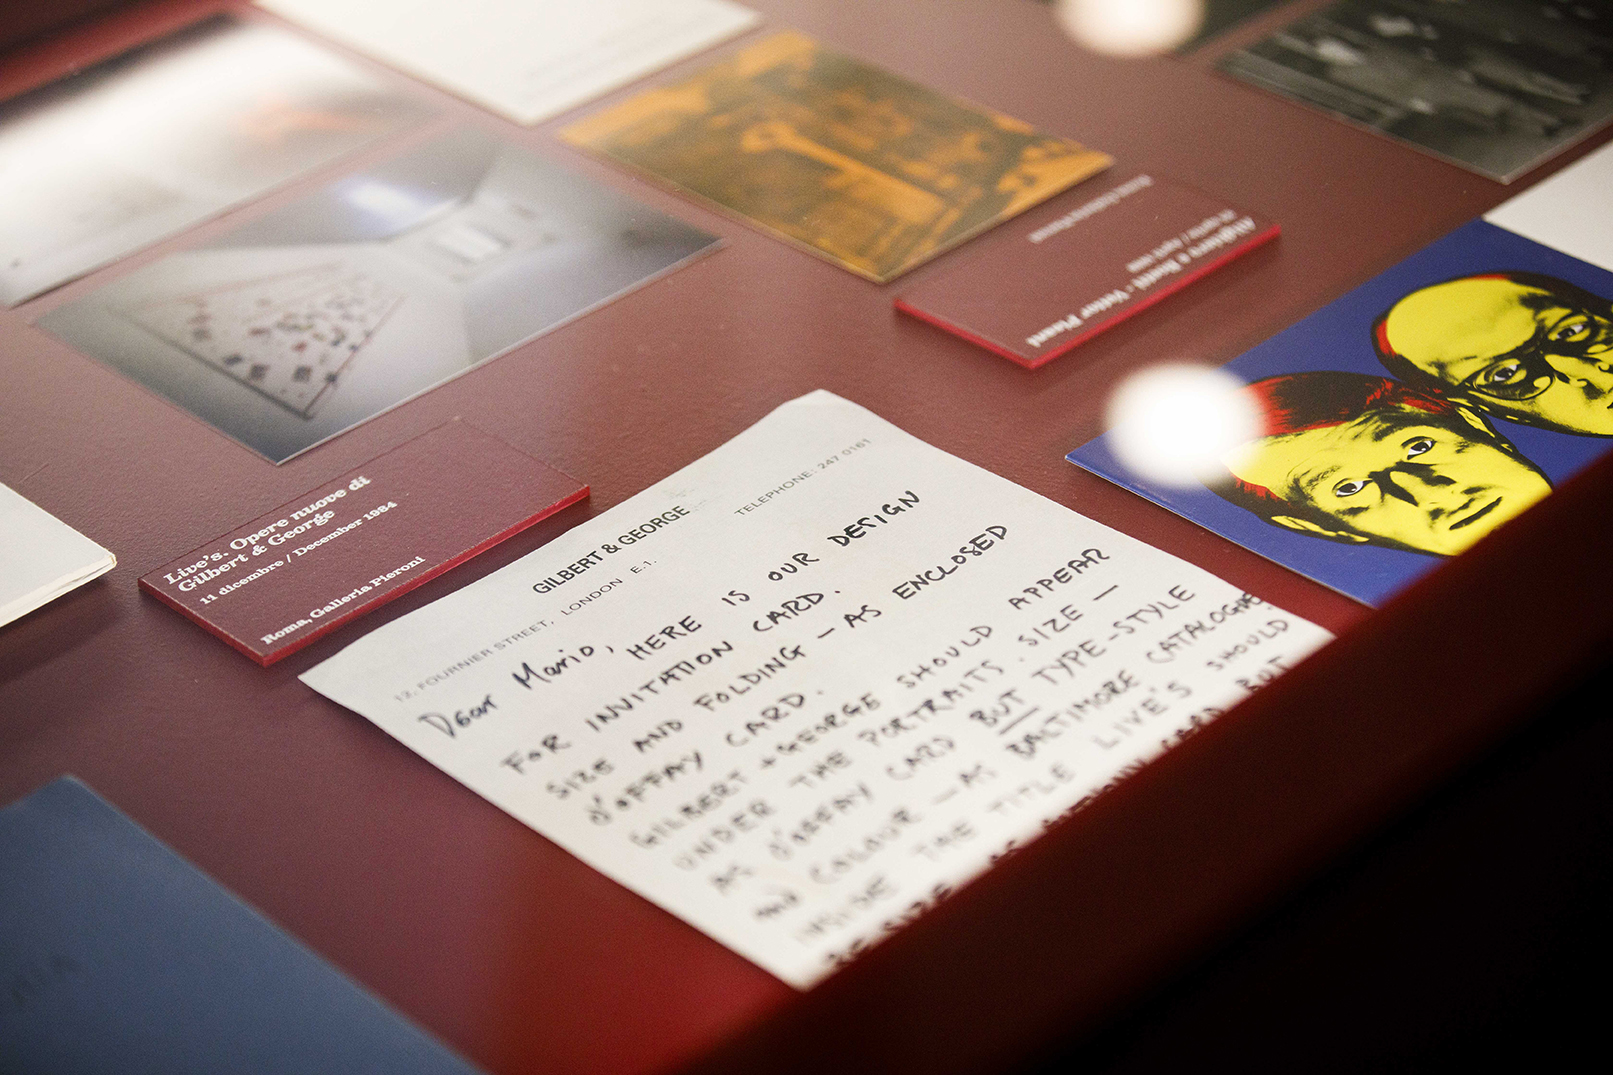 Live's. Opere nuove di
Gilbert & George
11 dicembre / December 1984
Roma, Galleria Pieroni
Alighiero e Boetti - Vettor Pisani
GILBERT & GEORGE
12, FOURNIER STREET, LONDON E.1. TELEPHONE: 247 0161
Dear Mario,
HERE IS OUR DESIGN
FOR INVITATION CARD.
SIZE AND FOLDING — AS ENCLOSED
d'OFFAY CARD.
GILBERT + GEORGE SHOULD APPEAR
UNDER THE PORTRAITS. SIZE —
AS d'OFFAY CARD BUT TYPE-STYLE
AND COLOUR — AS BALTIMORE CATALOGUE.
INSIDE THE TITLE LIVE'S SHOULD
BE SIZE AS CARD BUT